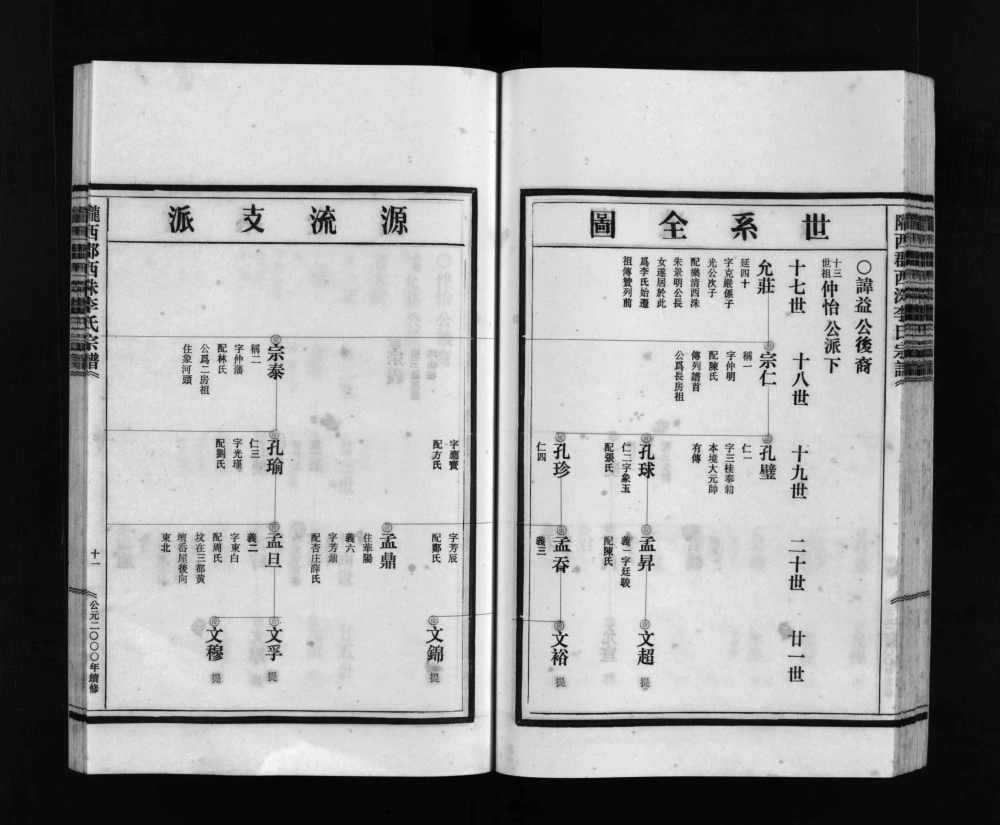 世系全圖
○諱益公後裔
十三世祖仲怡公派下
十七世
十八世
十九世
二十世
廿一世
允莊
延四十
字克嚴係子
光公次子
配樂清西洙
朱景明公長
女遂居於此
爲李氏始遷
祖傳贊列前
宗仁
稱一
字仲明
配陳氏
傳列譜首
公爲長房祖
孔璧
仁一
字三桂奉勅
本境大元帥
有傳
孔球
仁二字象玉
配張氏
孟昇
義一字廷駿
配陳氏
文超
提
孔珍
仁四
孟吞
義三
文裕
提
源流支派
字應寶
配方氏
字芳辰
配鄭氏
文錦
提
孟鼎
住華陽
義六
字芳鼎
配杏庄薛氏
宗泰
稱二
字仲藩
配林氏
公爲二房祖
住象河頭
孔瑜
仁三
字光瑾
配劉氏
孟旦
義二
字東白
配周氏
坟在三都黃
壇垂屋後向
東北
文孚
提
文穆
提
隴西郡西洙李氏宗譜
十一
公元二〇〇〇年續修